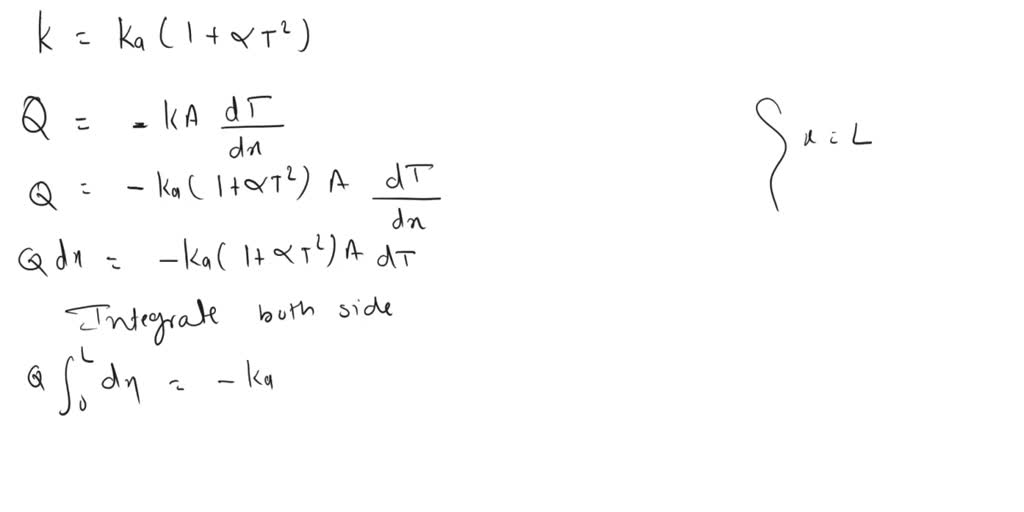 k = ka (1 + αT²)
Q = - kA dT/dx
x = L
Q = - ka (1 + αT²) A dT/dx
Q dx = - ka (1 + αT²) A dT
Integrate both side
Q ∫₀ᴸ dx = - ka